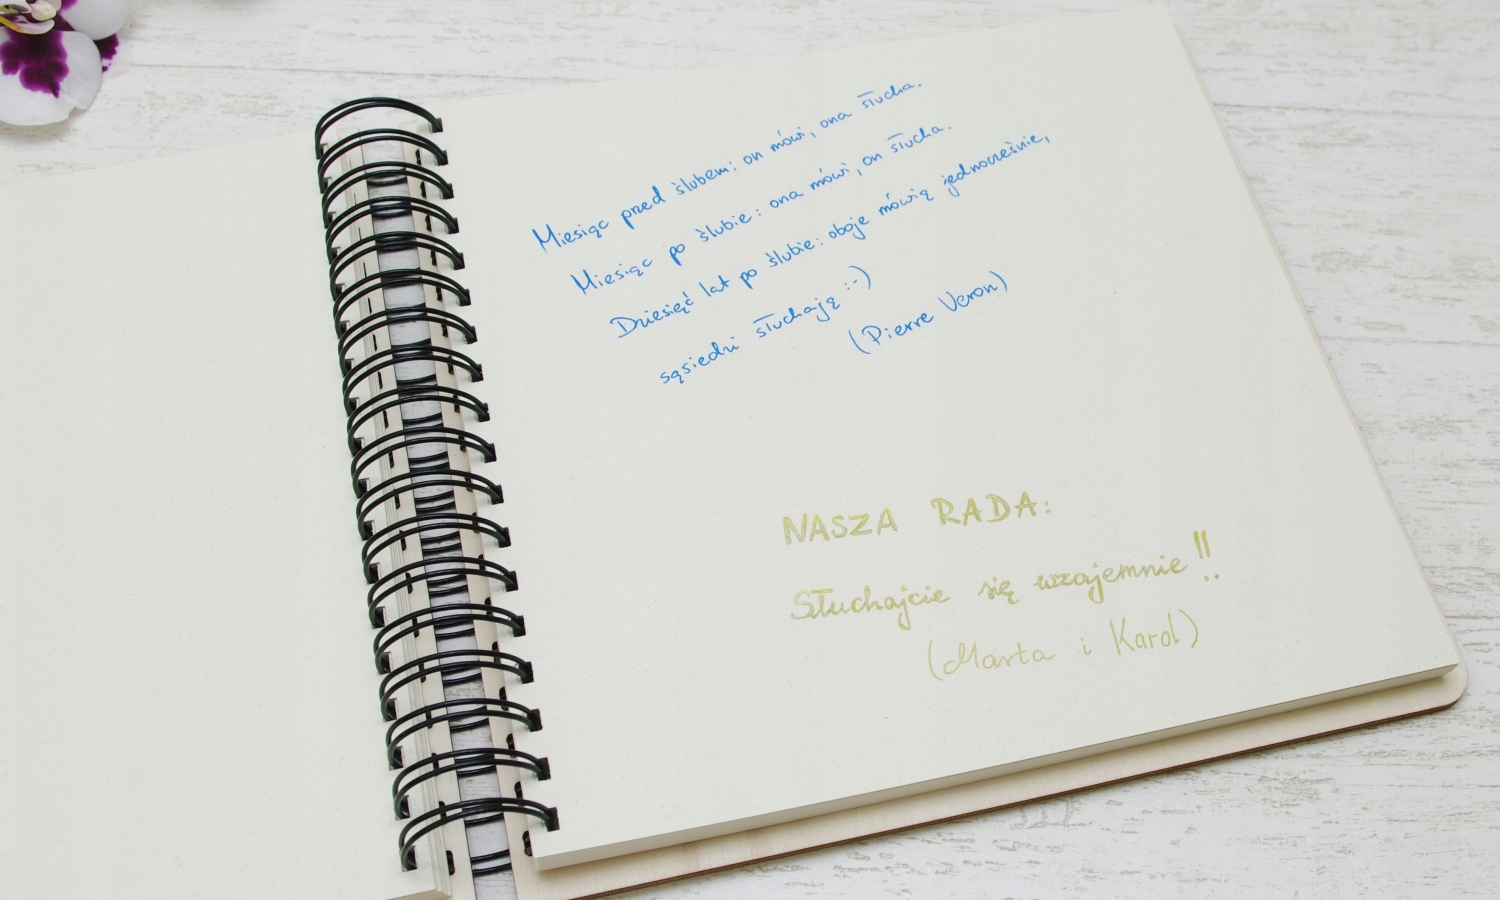 Miesiąc przed ślubem: on mówi, ona słucha.
Miesiąc po ślubie: ona mówi, on słucha.
Dziesięć lat po ślubie: oboje mówią jednocześnie,
sąsiedzi słuchają :-)
(Pierre Veron)
NASZA RADA:
Słuchajcie się wzajemnie!!
(Marta i Karol)